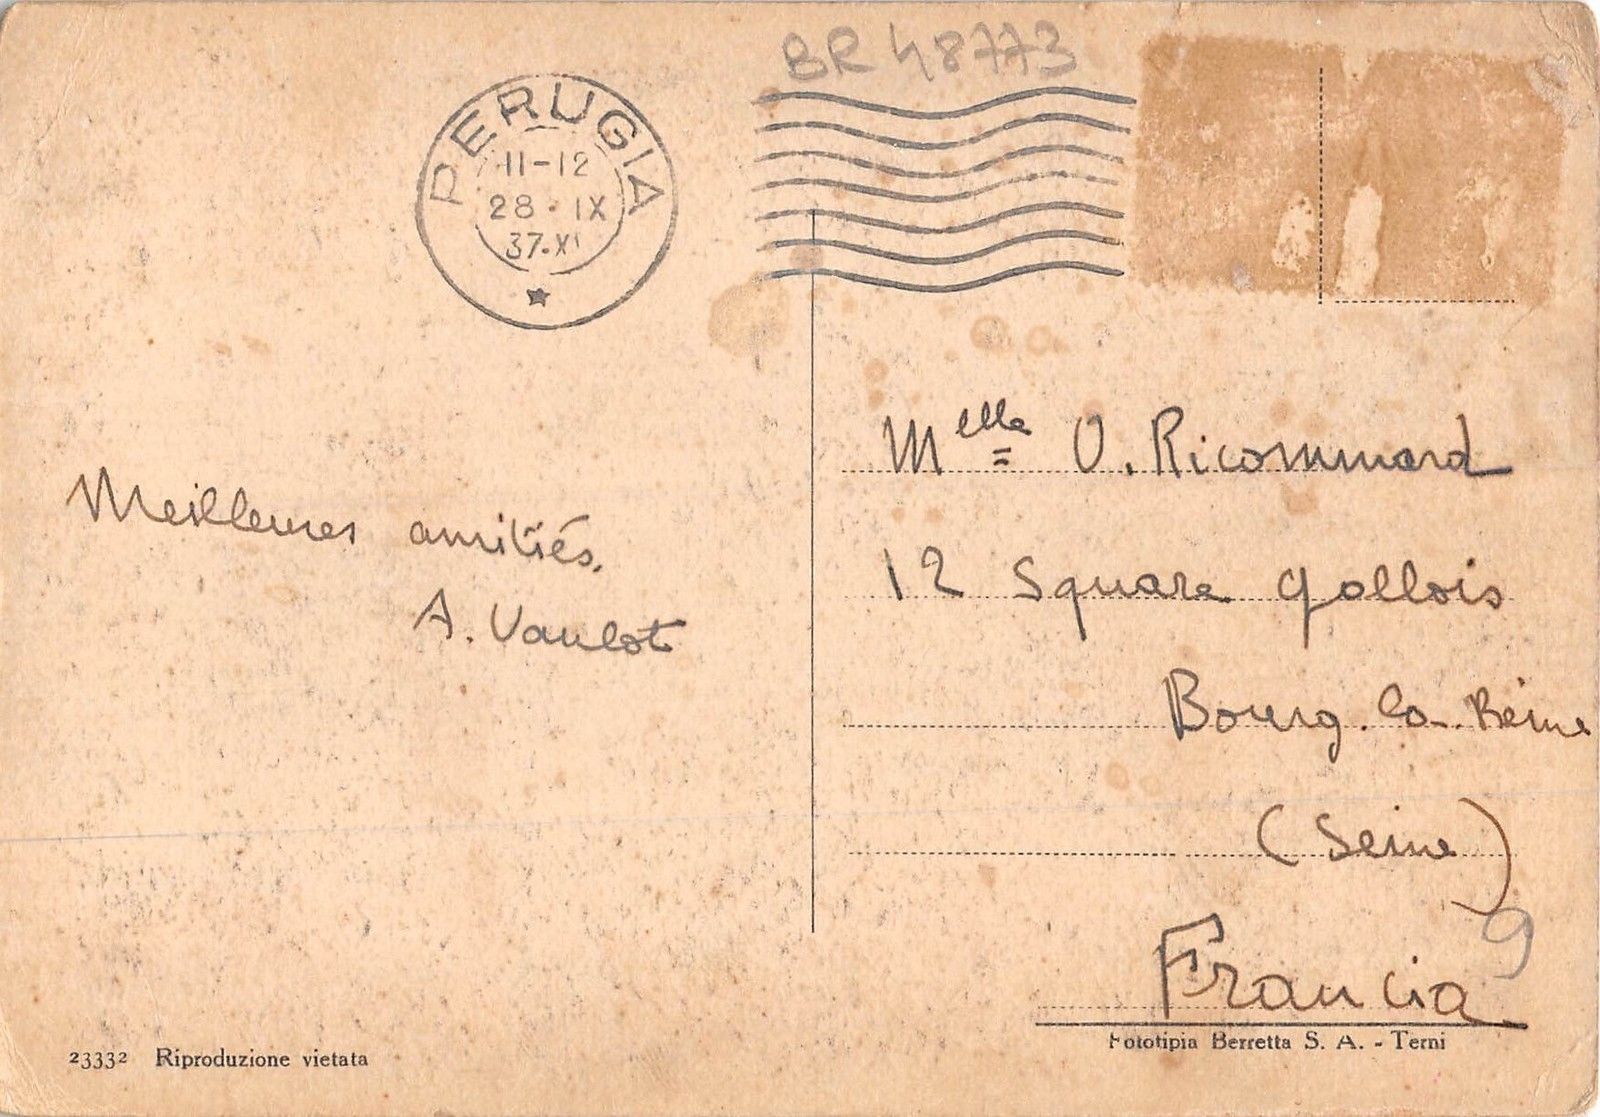 BR 48773
PERUGIA
11-12
28 · IX
37·XI
Melle O. Ricommard
12 Square Gallois
Bourg-la-Reine
(Seine)
Francia
9
Meilleures amitiés.
A. Vaulot
23332 Riproduzione vietata
Fototipia Berretta S. A. - Terni